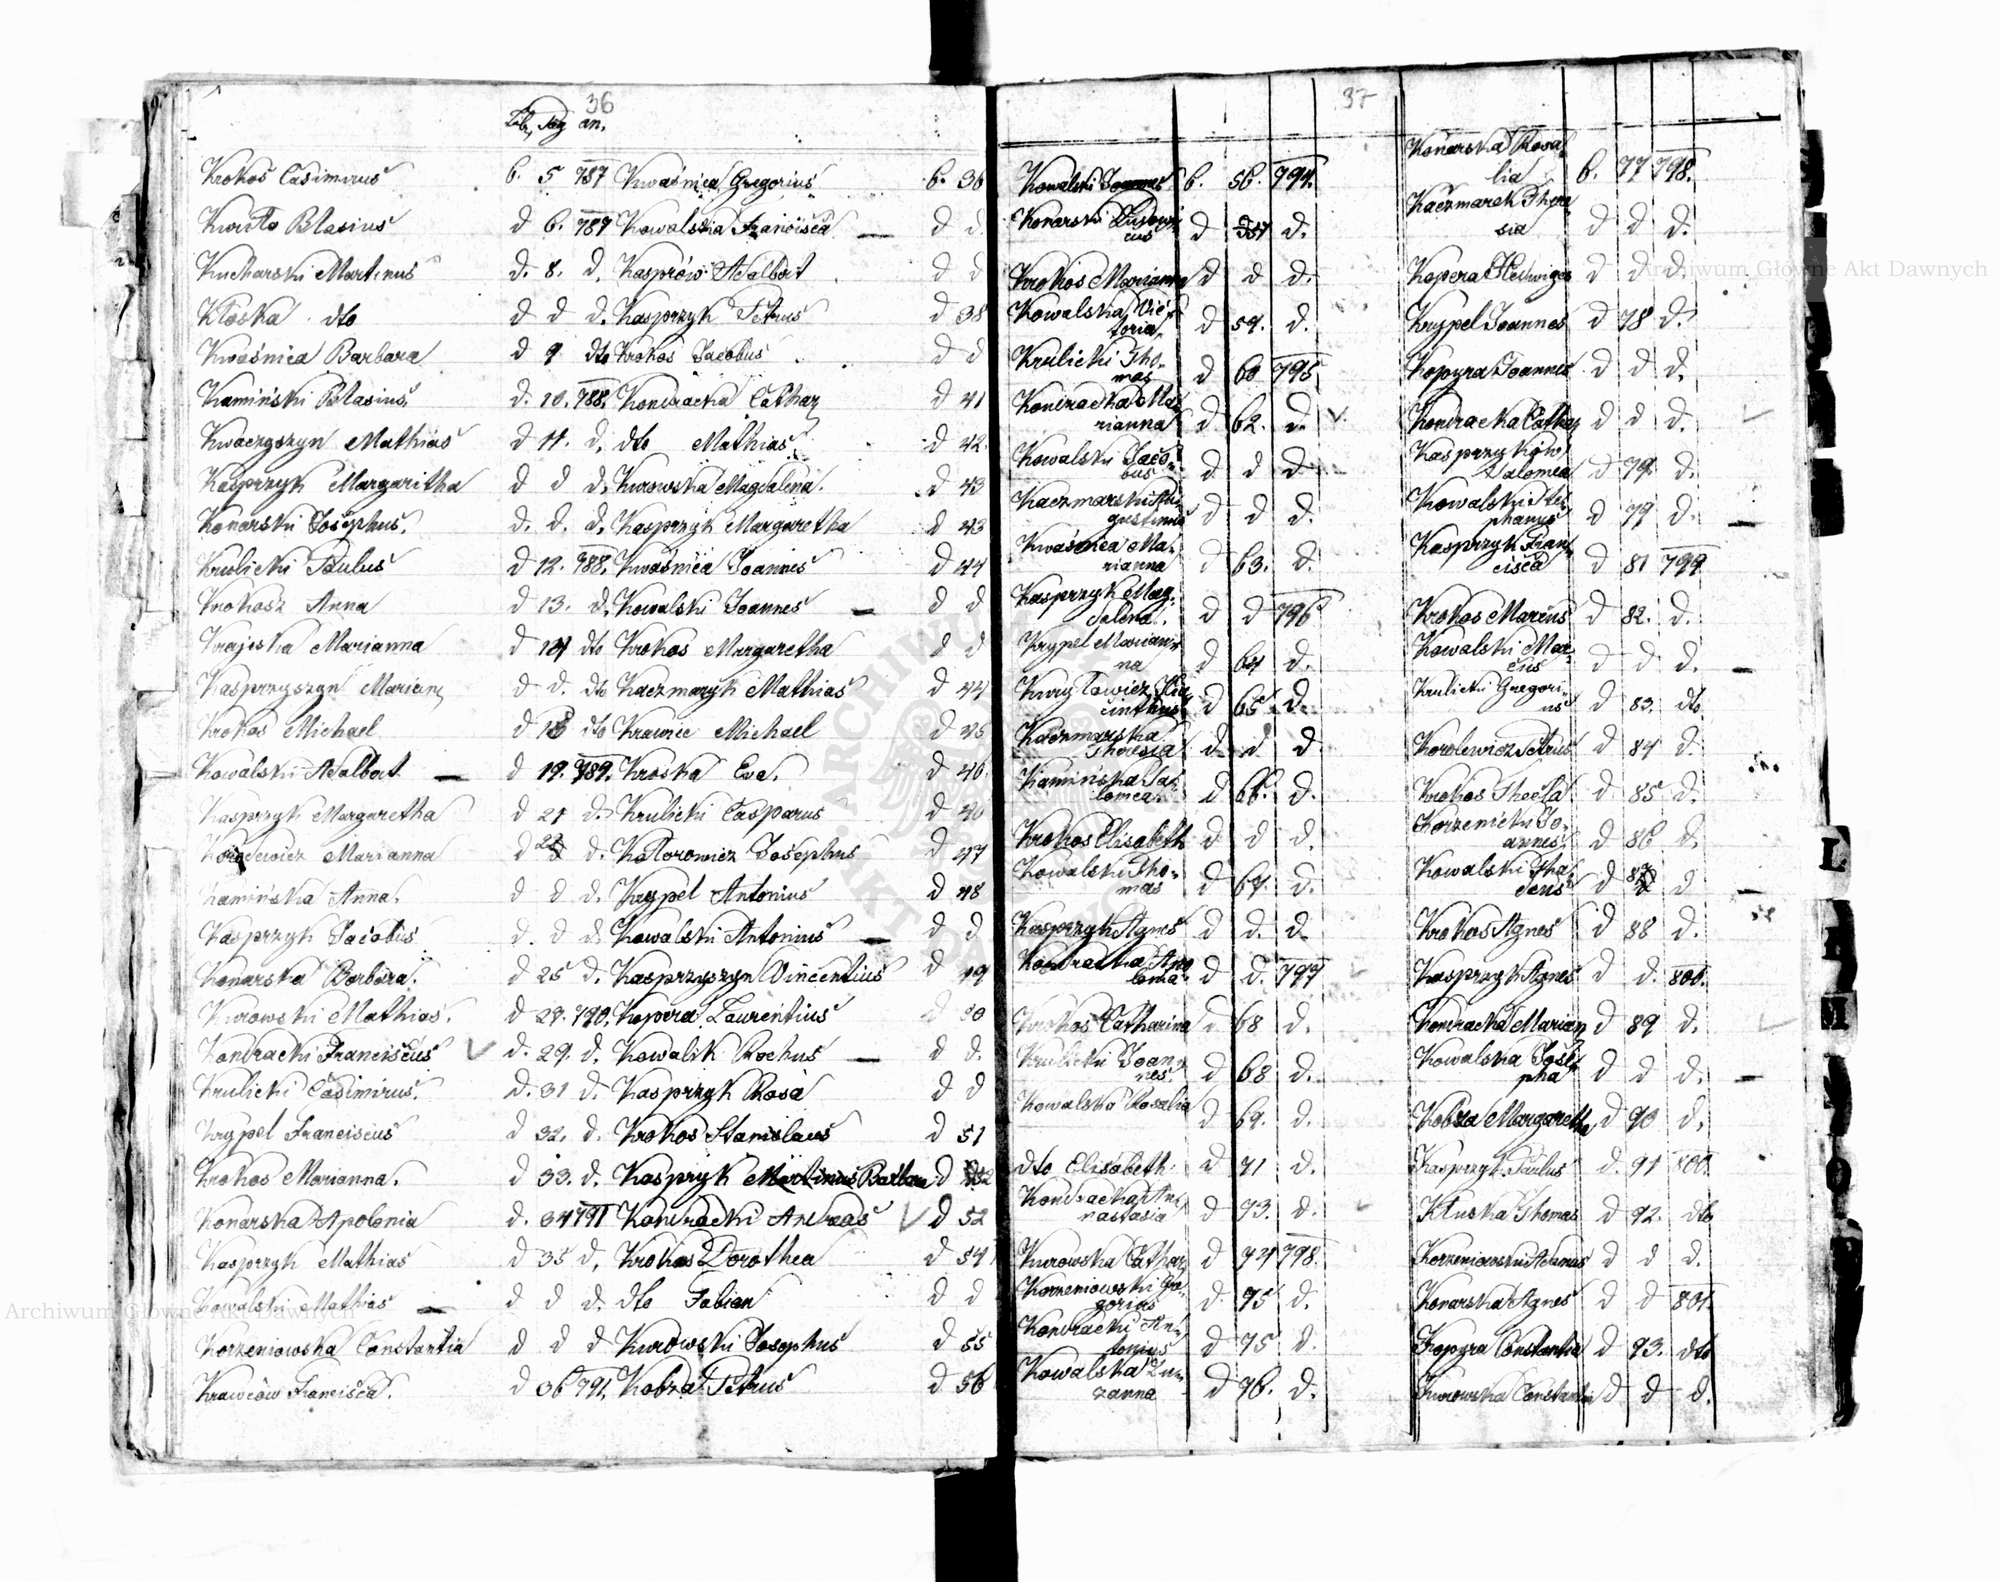 36
Lib. Pag an.
Krokos Casimirus b. 5 787
Kwito Blasius d 6. 787
Kucharski Martinus d. 8. d.
Kłoska dto d d d.
Kwaśnica Barbara d 9 dto
Kamiński Blasius d. 10. 788.
Kwaczyszyn Mathias d 11. d.
Kasprzyk Margaritha d d d.
Konarski Josephus. d. d. d.
Krulicki Paulus d 12. 788.
Krokosz Anna d 13. d.
Krajeska Marianna d 14 dto
Kasprzyszyn Mariann d d. dto
Krokos Michael d dto
Kowalski Adalbert — d 19. 789.
Kasprzyk Margaretha d 21 d.
Marianna d d.
Kamińska Anna. d d d.
Kasprzyk Jacobus d. d d.
Konarska Barbara. d 25 d.
Kurowski Mathias. d 27. 790.
Kondracki Franciscus d. 29. d.
Krulicki Casimirus. d. 31 d.
Krypel Franciscus d 32. d.
Krokos Marianna. d 33. d.
Konarska Apolonia d. 34 791
Kasprzyk Mathias d 35 d.
Kowalski Mathias — d d d.
Korzeniowska Constantia d d d
Krawców Francisca. d 36 791.
Kwaśnica Gregorius b. 36
Kowalska Francisca — d d
Kasprów Adalbert d d
Kasprzyk Petrus d 38
Krokos Jacobus d d
Kondracka Cathar d 41
dto Mathias d 42.
Kurowska Magdalena. d 43
Kasprzyk Margaretha d 43
Kwaśnica Joannes d 44
Kowalski Joannes — d d
Krokos Margaretha d d
Kaczmarzyk Mathias d 44
Krawiec Michael d 45
Kroska Eva. d 46.
Krulicki Casparus d 46
Kotorowicz Josephus d 47
Krypel Antonius d 48
Kowalski Antonius — d d
Kasprzyszyn Vincentius d 49
Kopera Laurentius d 50
Kowalik Rochus — d d.
Kasprzyk Rosa d d
Krokos Stanislaus d 51
Kasprzyk Martinus Barbara d 52
Kondracki Andreas d 52
Krokos Dorothea d 54
dto Fabian d d
Kurowski Josephus d 55
Kobza Petrus d 56
37
Kowalski Joannes b. 56. 794.
Konarski Ludovi
cus d 57 d.
Krokos Marianna d d d.
Kowalska Vic
toria d 59. d.
Krulicki Tho-
mas d 60 795
Kondracka Ma-
rianna d 62. d.
Kowalski Jaco-
bus d d d.
Kaczmarski Au-
gustinus d d d.
Kwaśnica Ma-
rianna d 63. d.
Kasprzyk Mag-
dalena. d d 796
Krypel Marian-
na d 64 d.
Kuryłowicz Hia
cinthus d 65 d.
Kaczmarska
Theresia d. d d
Kamińska Sa-
lomea. d 66. d.
Krokos Elisabeth d d d.
Kowalski Tho-
mas d 67. d.
Kasprzyk Agnes d d. d.
Kondracka Apo
lonia d d. 797
Krokos Catharina d 68 d.
Krulicki Joan-
nes. d 68 d.
Kowalska Rosalia d 69. d.
dto Elisabeth. d 71 d.
Kondracka An-
nastasia d 73. d.
Kurowska Cathar d 74 798.
Korzeniowski Gre-
gorius d. 75 d.
Kondracki An-
tonius d 75 d.
Kowalska Zu-
zanna d 76. d.
Konarska Rosa
lia b. 77 798.
Kaczmarek There-
sia d d d.
Kopera Hedwiges d d d.
Krypel Joannes d 78 d.
Kopyra Joannes d d d.
Kondracka Cathar d d d.
Kasprzyków
Salomea d 79. d.
Kowalski Ste-
phanus d 79 d. —
Kasprzyk Fran-
cisca d 81 799.
Krokos Marcus d 82. d.
Kowalski Mar-
cus d d d. —
Krulicki Gregori-
us d 83. dto
Korolewicz Petrus d 84 d.
Krokos Thecla d 85 d.
Korzenicki Jo-
annes. d 86 d.
Kowalski Tha-
deus d 87 d —
Krokos Agnes d 88 d.
Kasprzyk Agnes d d. 800.
Kondracka Mariann d 89 d.
Kowalska Jose-
pha d d d. —
Kobza Margaretha d 90 d.
Kasprzyk Paulus d. 91 800.
Kluska Thomas d 92. dto
Korzeniowski Adamus d d d.
Konarska Agnes d d 801.
Kopyra Constantia d 93. dto
Kurowska Constantia d d d.
Archiwum Główne Akt Dawnych
Archiwum Główne Akt Dawnych
L